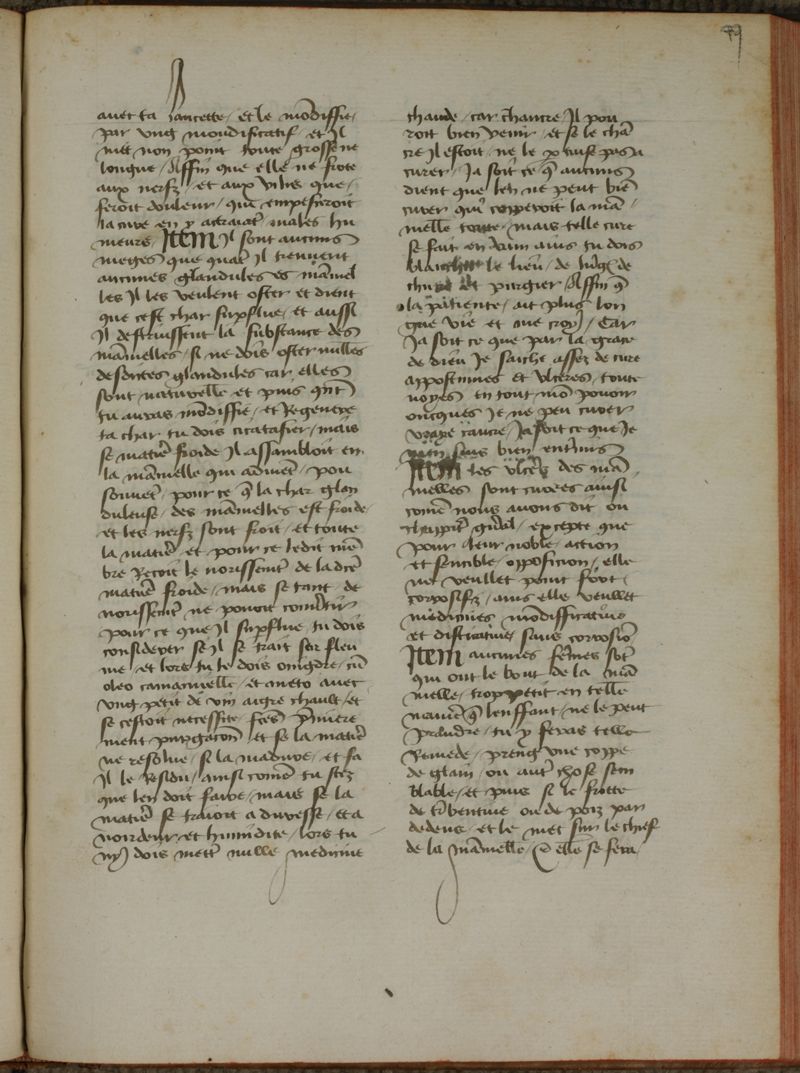 79
avec ta lancette et le mondiffie
par ung mondificatif et Il
met non point toute grosse ne
longue Affin que elle ne frote
aux nerfz et aux vilus que
feroit douleur qui empescheroit
la cure en y actraiat males hu
meurs Item Il sont aucuns
meges que quāt Il treuvent
aucunes glandules es māmel
les Il les veulent oster et dient
que cest char supflue et aussi
Il destruissent la substance des
māmelles si ne dois oster nulles
desdictes glandules car elles
sont naturelle et puis quāt
tu auras mōdiffie et Regenere
ta char tu dois cicatrisier mais
se matiere froide Il assambloit en
la māmelle qui advient pou
souvēt pour ce q̄ la char glan
duleuse des māmelles est froide
et les nerfz sont froit et toute
la matiere et pour ce ledit mē
bre Recoit le norissemēt de ladcē
matiere froide mais se tant de
norissemēt ne pouoit convertir
pour ce que Il supflue tu dois
considerer se Il se trait sor fleu
me et lors tu le dois oingdre cū
oleo camamille et aneto avec
ung petit de vin aigre chault et
se cestoit necessite fces premiere
ment purgacon et se la matiere
ne resolue si la madure et fa
Il le residu ainsi comē tu scez
que len doit faire mais se la
matiere se traioit a duresse et a
noirdeur et humidite lors tu
ny dois mettre nulle medicine
chaude car chancre Il pou
roit bien venir et se le chā
cre Il estoit ne le cuif pas a
curer Ja soit ce q̄ aucuns
dient que len ne peut biē
curer qui copperoit la mā
melle toute mais telle cure
se fait en vain ains tu dois
le lieu de
et purgier Affin q̄
la patiente ait plus lon
gue vie et me croy Car
Ja soit ce que par la grace
de dieu Je saiche assez de cure
appostumes et ulceres toute
voyes en tout mō povoir
oncques Je ne peu curer
vraye cancre Ja soit ce que Je
men suis bien entremis
Item les ulceres des mā
melles sont curees ainsi
comē nous avons dit ou
chappitre gnāl excepte que
pour leur noble action
et sencible opposicion elle
ne veullet point fort
corrosifz ains elle veullet
medicines mōdifficatives
et desicatives sans corrosiō
Item aucunes fēmes sōt
qui ont le bout de la mā
melle trop petit en telle
maniere q̄ lenffant ne le peut
prandre tu y feras telle
Remede preng une coppe
de glain ou autre chose sem
blable et puis si le frotte
de trebentine ou de poiz par
dedens et le met sur le chief
de la māmelle Et elle se fera